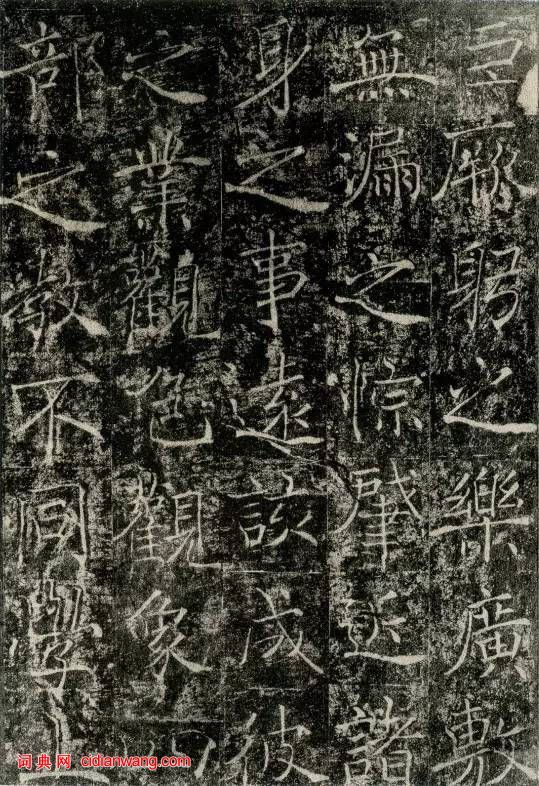 厥躬之樂廣敷
無漏之悰肇諸
身之事遠談成彼
之業觀色觀象
部之教不同學
词典网 cidianwang.com